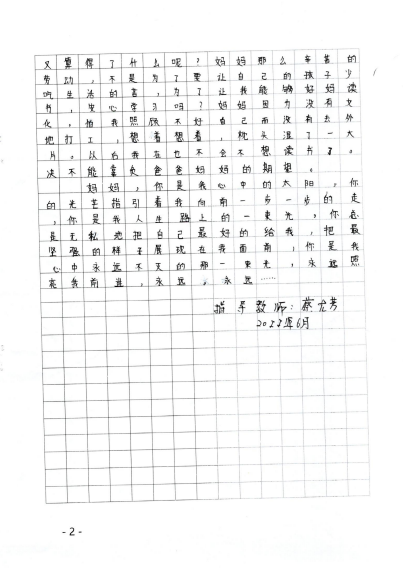 又算得了什么呢?妈妈那么辛苦的
劳动,不是为了要让自己的孩子少
吃生活的苦,为了让我能够好好读
书,安心学习吗?妈妈因为没有文
化,怕我照顾不好自己而没有去外
地打工,想着想着,枕头湿了一大
片。以后我在也不会不想读书了。
决不能辜负爸爸妈妈的期望。
妈妈,你是我心中的太阳,你
的光芒指引着我向前一步一步的走
,你是我人生路上的一束光,你总
是无私地把自己最好的给我,把最
坚强的样子展现在我面前,你是我
心中永远不灭的那一束光,永远照
亮我前进,永远,永远……
指导教师:蔡龙芳
2022年6月
- 2 -